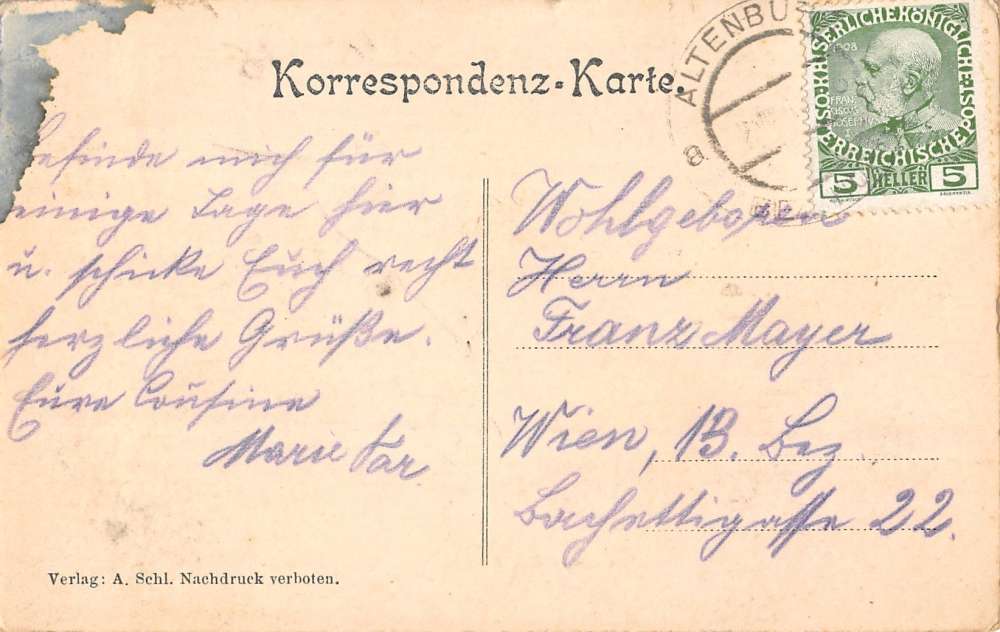 Korrespondenz-Karte.
ALTENBU
a
KAISERLICHE KÖNIGLICHE ÖSTERREICHISCHE POST
1908
FRANCISCVS JOSEPHVS I
5 HELLER 5
befinde mich für
einige Tage hier
u. schicke Euch recht
herzliche Grüße.
Eure Cousine
Marie
Wohlgeboren
Herrn
Franz Mayer
Wien, 13. Bez.
Bachettigasse 22.
Verlag: A. Schl. Nachdruck verboten.